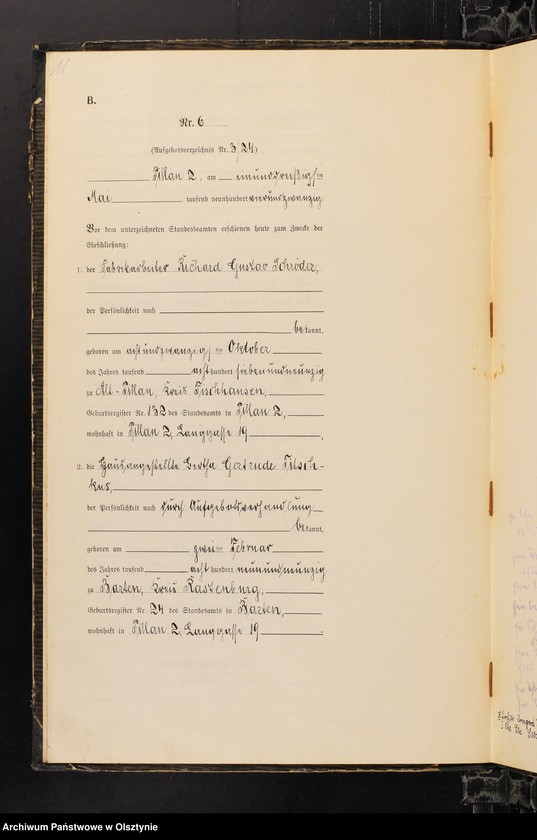 B.
Nr. 6
(Aufgebotsverzeichnis Nr. 3/24)
Pillau 2, am einunddreißigsten
Mai tausend neunhundert vierundzwanzig
Vor dem unterzeichneten Standesbeamten erschienen heute zum Zwecke der
Eheschließung:
1. der Fabrikarbeiter Richard Gustav Schröder,
der Persönlichkeit nach
bekannt,
geboren am achtundzwanzigsten Oktober
des Jahres tausend achthundert siebenundneunzig
zu Alt-Pillau, Kreis Fischhausen,
Geburtsregister Nr. 132 des Standesamts in Pillau 2,
wohnhaft in Pillau 2, Langgasse 19,
2. die Hausangestellte Bertha Gertrude
der Persönlichkeit nach durch Aufgebotsverhandlung
bekannt,
geboren am zweiten Februar
des Jahres tausend achthundert neunundneunzig
zu Barten, Kreis Rastenburg,
Geburtsregister Nr. 24 des Standesamts in Barten,
wohnhaft in Pillau 2, Langgasse 19.
Archiwum Państwowe w Olsztynie